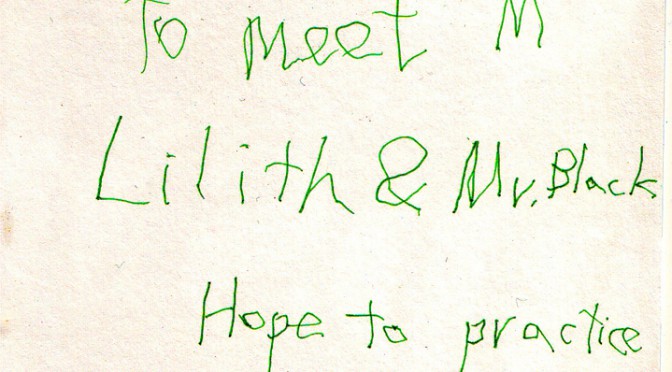 To meet M
Lilith & Mr. Black
Hope to practice